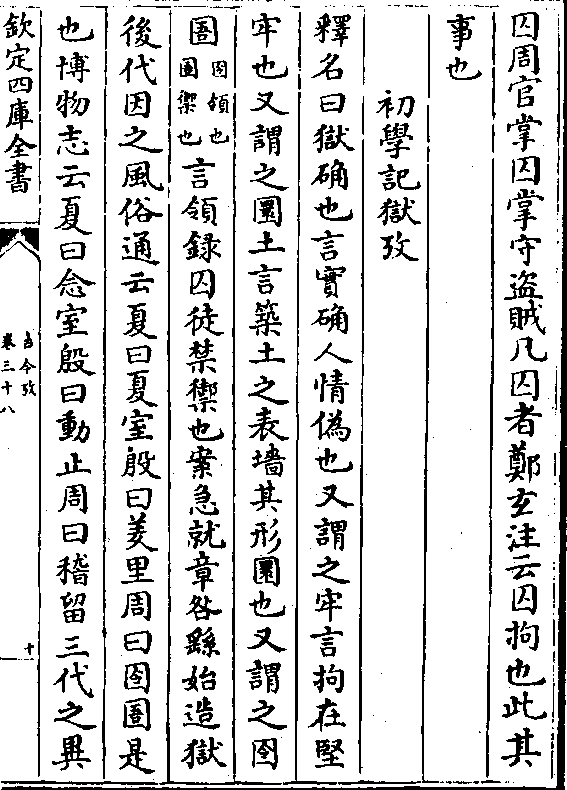 囚周官掌囚掌守盜賊凡囚者鄭玄注云囚拘也此其
事也
初學記獄攷
釋名曰獄确也言實确人情偽也又謂之牢言拘在堅
牢也又謂之圜土言築土之表墻其形圜也又謂之囹
圄囹領也圄禦也言領録囚徒禁禦也案急就章咎繇始造獄
後代因之風俗通云夏曰夏室殷曰羑里周曰囹圄是
也博物志云夏曰念室殷曰動止周曰稽留三代之異
欽定四庫全書
古今攷
卷三十八
十